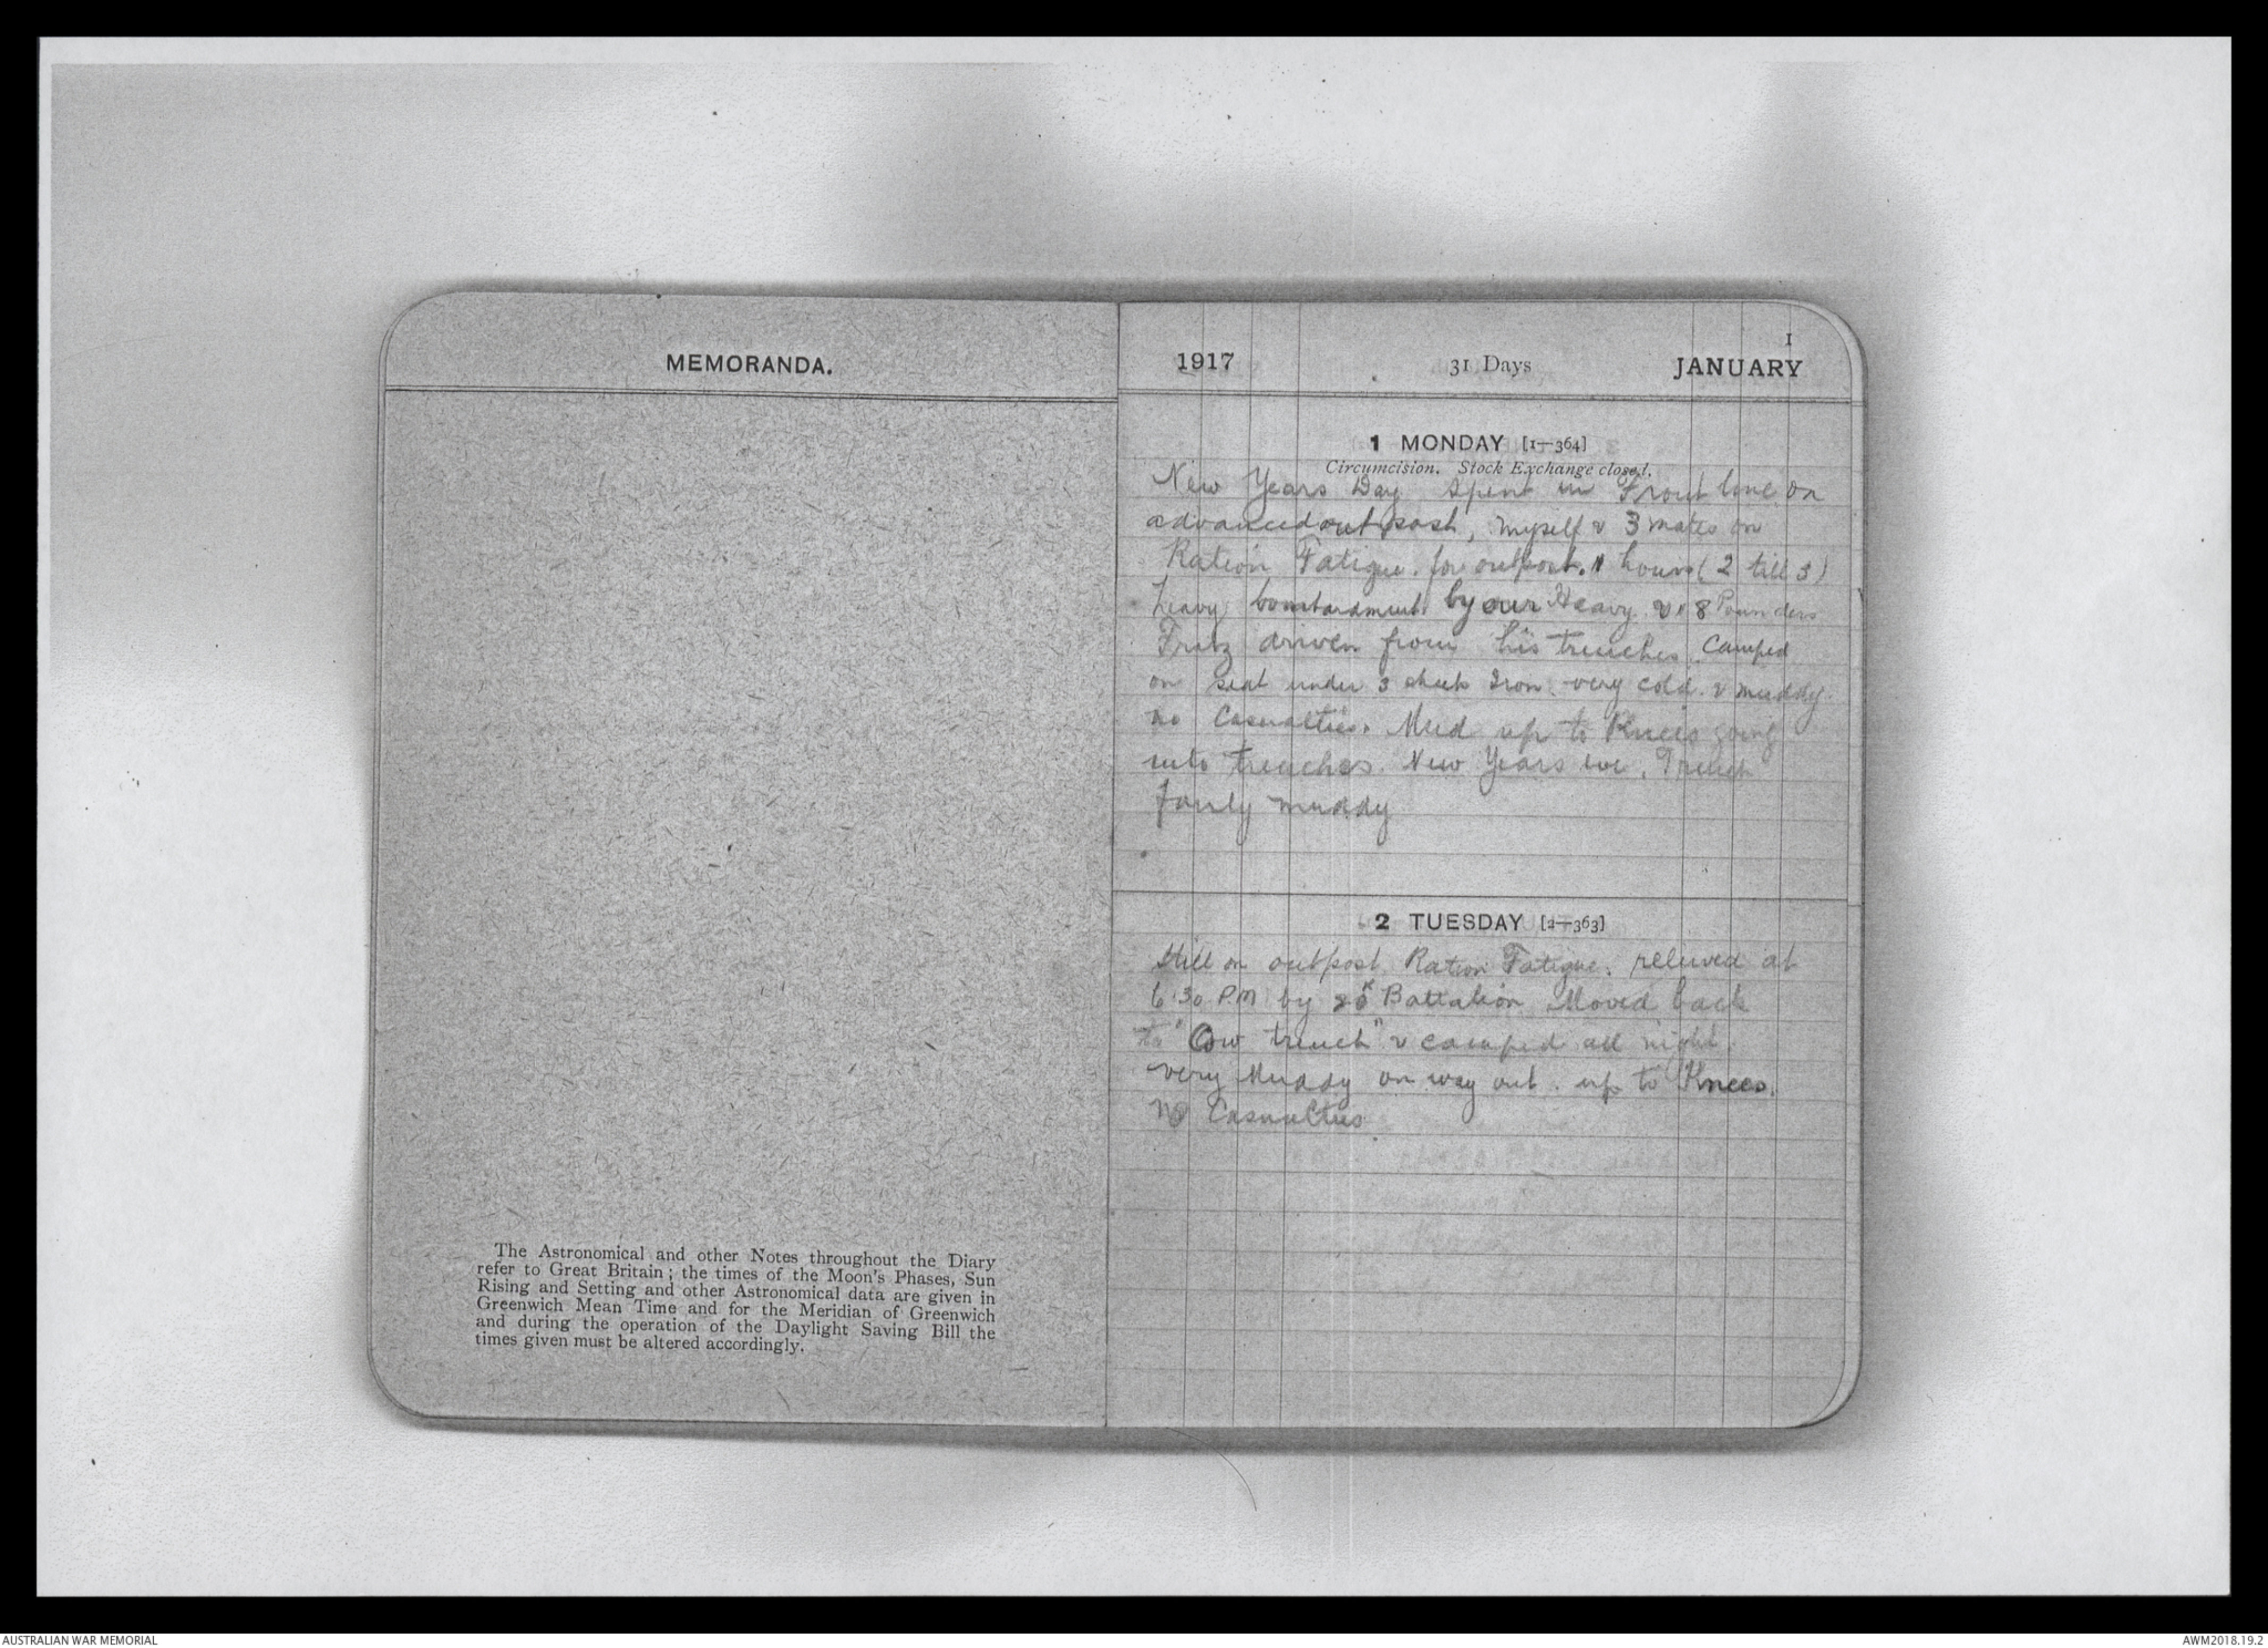 MEMORANDA.
The Astronomical and other Notes throughout the Diary
refer to Great Britain; the times of the Moon's Phases, Sun
Rising and Setting and other Astronomical data are given in
Greenwich Mean Time and for the Meridian of Greenwich
and during the operation of the Daylight Saving Bill the
times given must be altered accordingly.
I
1917 31 Days JANUARY
1 MONDAY [1—364]
Circumcision. Stock Exchange closed.
New Years Day spent in Front line on
advanced outpost, myself & 3 mates on
Ration Fatigue. for outpost. hours (2 till 3)
heavy bombardment by our Heavy & 18 Pounders
Fritz driven from his trenches. Camped
on seat under 3 sheets Iron. very cold. & muddy.
no Casualties. Mud up to Knees going
into trenches. New Years eve, Trench
fairly muddy
2 TUESDAY [2—363]
Still on outpost. Ration Fatigue. relieved at
6.30 P.M by Battalion Moved back
to " trench" & camped all night.
very Muddy on way out. up to Knees.
No Casualties
AUSTRALIAN WAR MEMORIAL
AWM2018.19.2